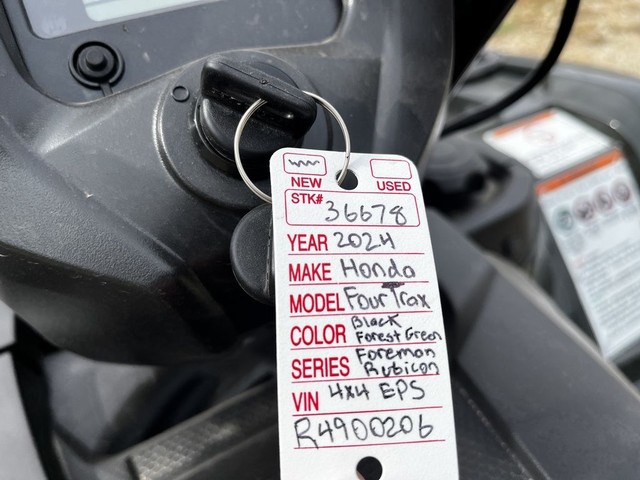 NEW USED
STK# 36678
YEAR 2024
MAKE Honda
MODEL FourTrax
COLOR Black
Forest Green
SERIES Foreman
Rubicon
VIN 4x4 EPS
R4900206